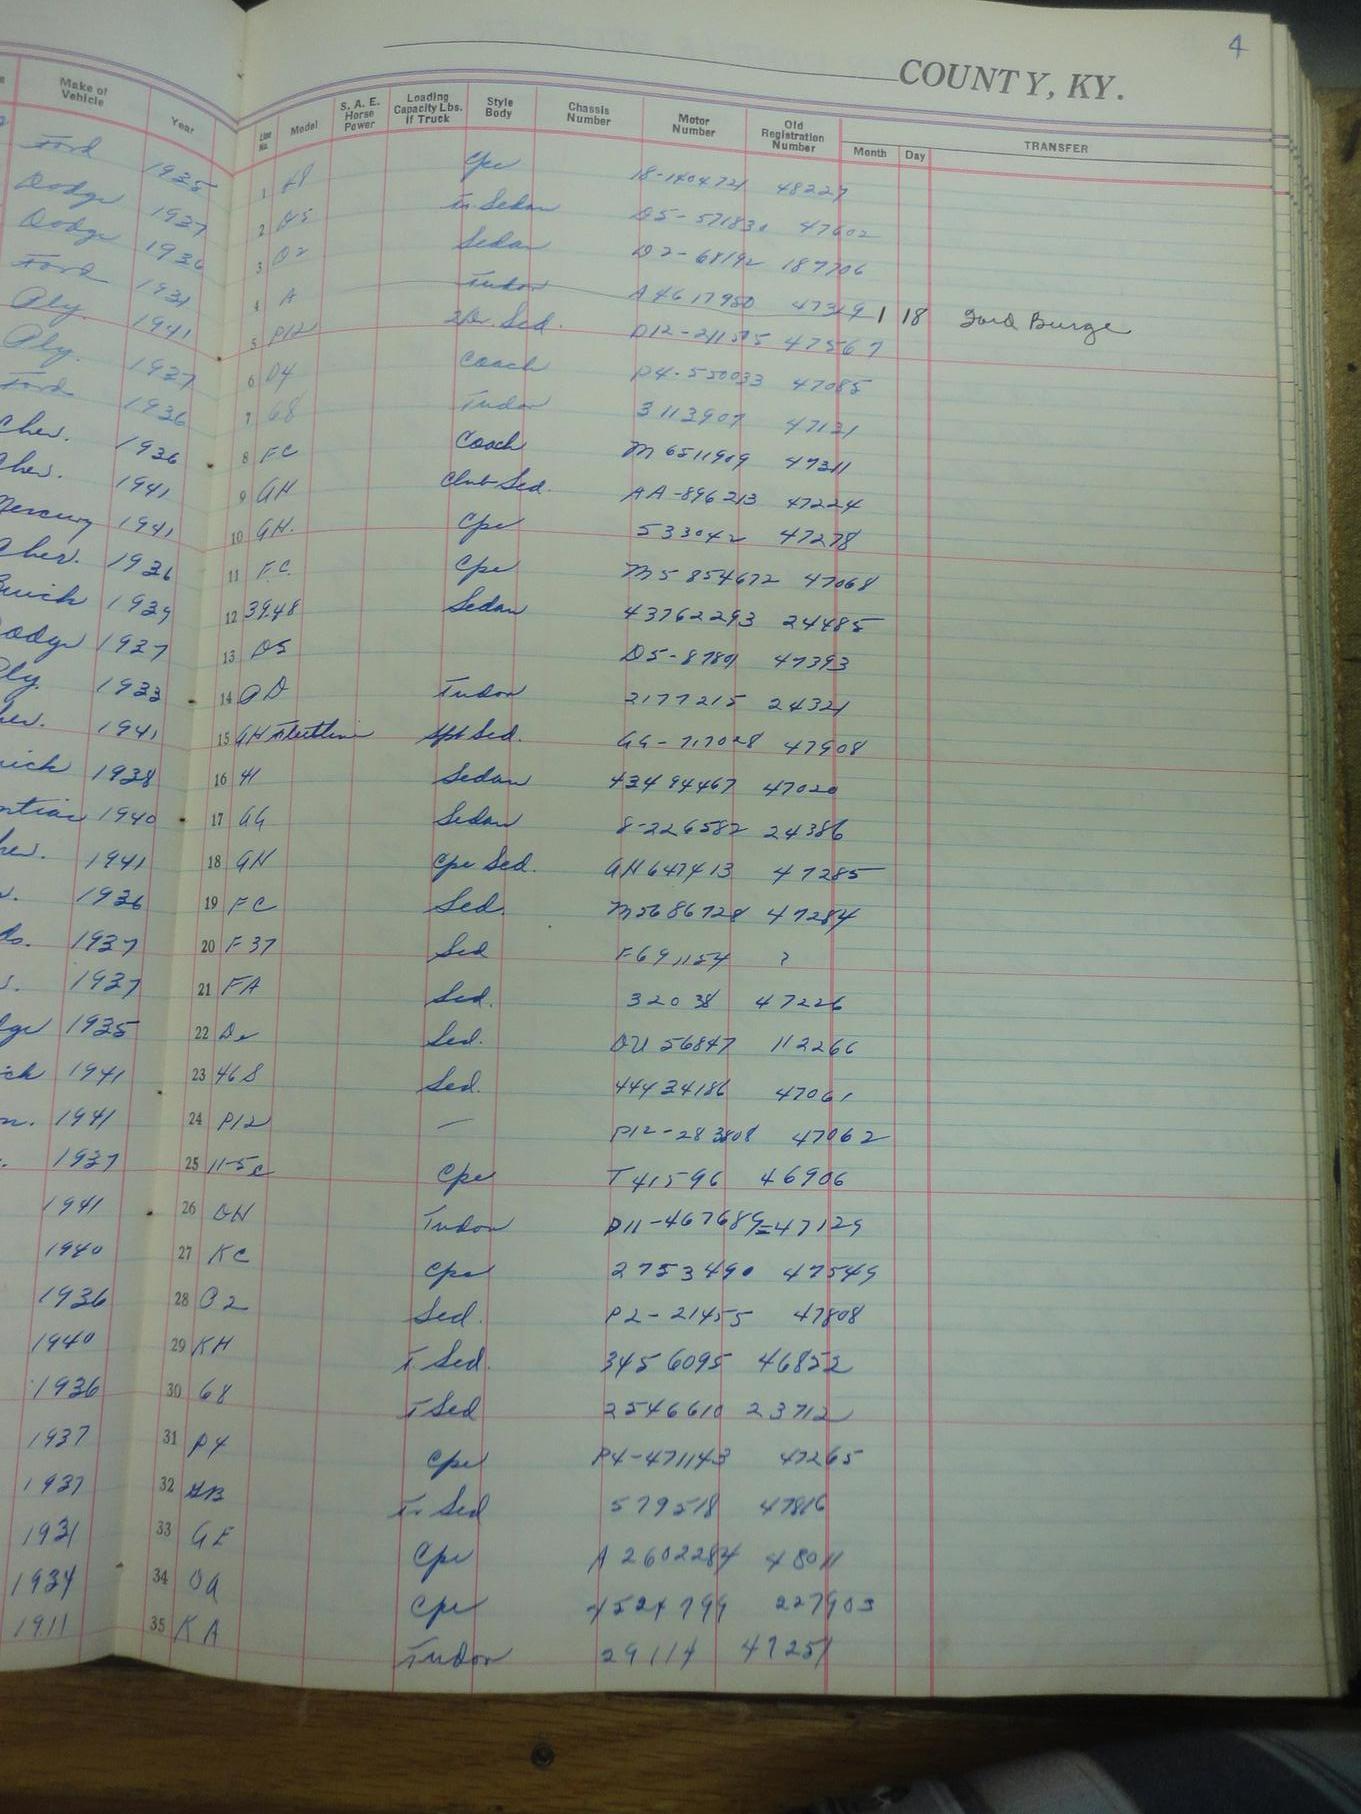 4
COUNTY, KY.
Make of Vehicle Year Line No. Model S. A. E. Horse Power Loading Capacity Lbs. If Truck Style Body Chassis Number Motor Number Old Registration Number Month Day TRANSFER
Ford 1935 1 48 Cpe 18-1404721 48227
Dodge 1937 2 D5 Tr. Sedan D5-571830 47602
Dodge 1936 3 D2 Sedan D2-68192 187706
Ford 1931 4 A Tudor A4617950 47319 1 18 Burge
Ply. 1941 5 P12 2Dr. Sed. P12-211505 47567
Ply. 1937 6 P4 Coach P4-550033 47085
Ford 1936 7 68 Tudor 3113907 47131
Chev. 1936 8 FC Coach M6511909 47311
Chev. 1941 9 GH Club Sed. AA-896213 47224
Mercury 1941 10 GH. Cpe 533042 47278
Chev. 1936 11 FC. Cpe M5854672 47068
Buick 1939 12 39.48 Sedan 43762293 24485
Dodge 1937 13 D5 D5-87801 47393
Ply. 1933 14 PD Tudor 2177215 24321
1941 15 GH Fleetline Spt Sed. GG-717028 47908
1938 16 41 Sedan 43494467 47020
1940 17 GG Sedan 8-226582 24386
1941 18 GH Cpe Sed. GH647413 47285
1936 19 FC Sed. M5686728 47284
1937 20 F37 Sed F691154 ?
1937 21 FA Sed. 32038 47226
1935 22 Sed. DU56847 112266
1941 23 46S Sed. 44434186 47061
1941 24 P12 — P12-283808 47062
1937 25 11-5c Cpe T41596 46906
1941 26 GH Tudor P11-467689=47129
1940 27 KC Cpe 2753490 47549
1936 28 P2 Sed. P2-21455 47808
1940 29 KH T Sed. 3456095 46852
1936 30 68 T Sed 2546610 23712
1937 31 P4 Cpe P4-471143 47265
1937 32 GB Tr Sed 579518 47816
1931 33 GE Cpe A2602284 48011
1934 34 DA Cpe 4524799 227903
1911 35 KA Tudor 29114 47251